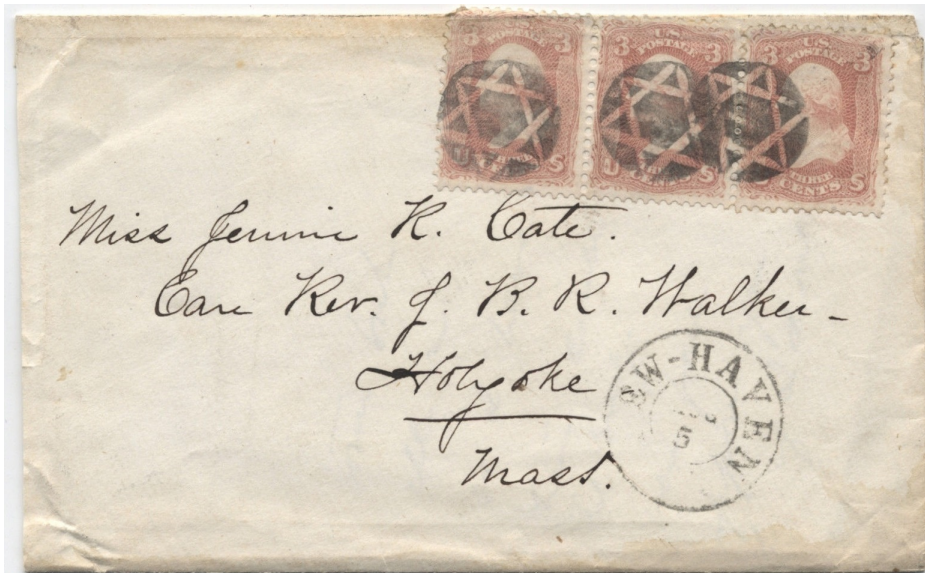 3 3
U.S. POSTAGE
3 3
U.S. POSTAGE
3 3
U S
THREE
U S
THREE CENTS
S
Miss Jennie K. Cate.
Care Rev. J. B. R. Walker -
Holyoke
Mass.
EW-HAVEN
5